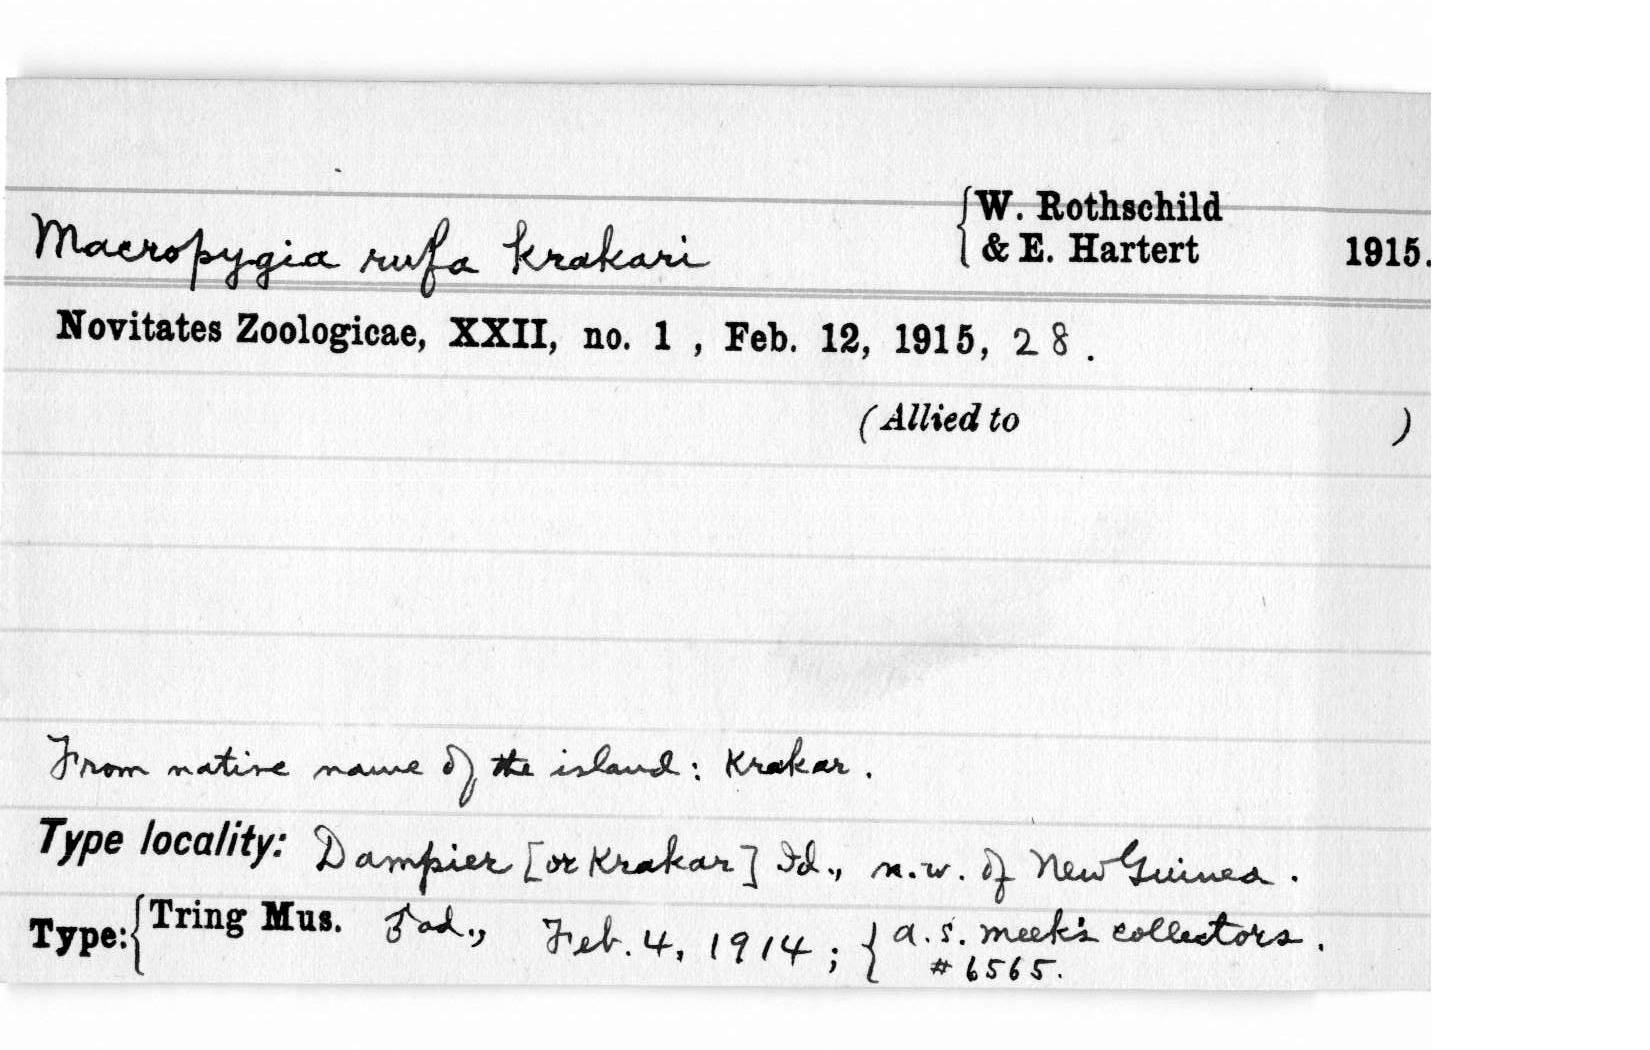 Macropygia rufa krakari { W. Rothschild & E. Hartert 1915.
Novitates Zoologicae, XXII, no. 1 , Feb. 12, 1915, 28 .
(Allied to )
From native name of the island: Krakar .
Type locality: Dampier [or Krakar] Id., n.w. of New Guinea .
Type: { Tring Mus. ♂ ad., Feb. 4, 1914 ; { A. S. Meek's collectors .
# 6565.